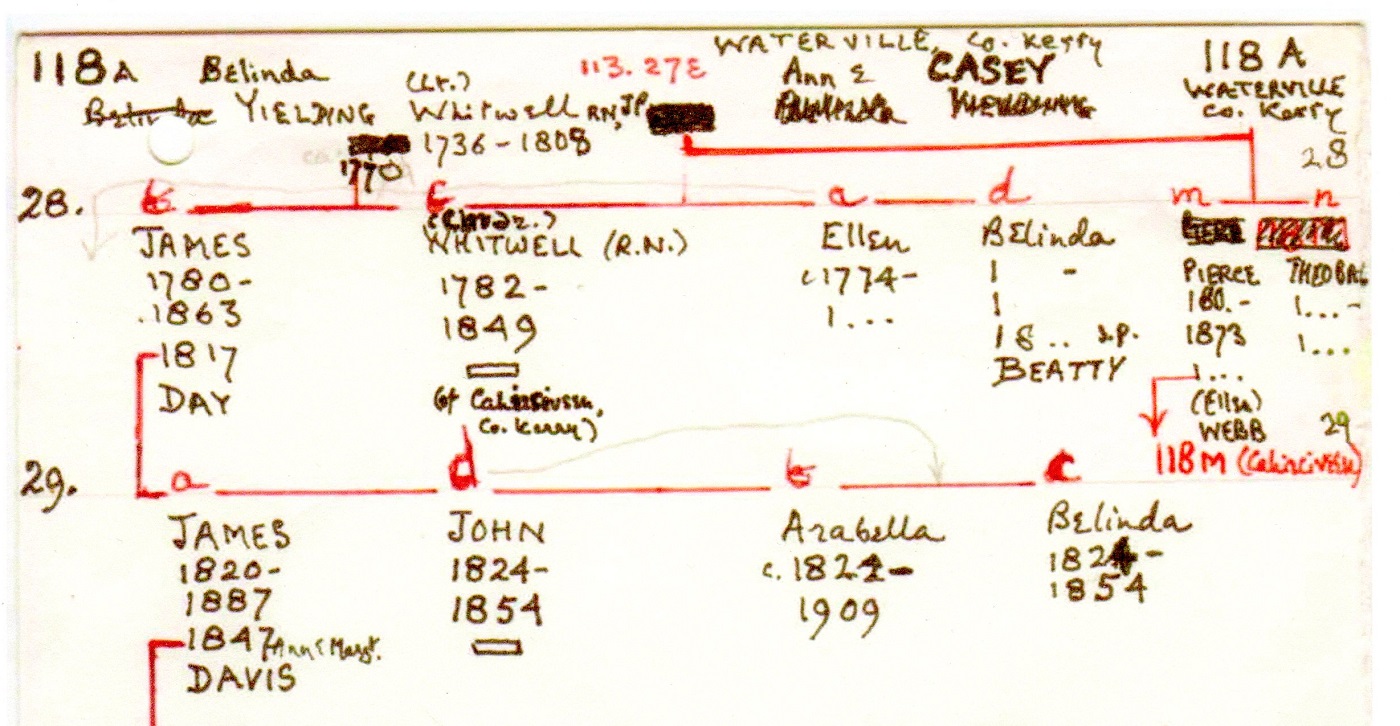 WATERVILLE, Co. Kerry
118A Belinda (Lt.) 113.27E Ann E CASEY 118 A
YIELDING Whitwell RN, JP WATERVILLE
Co. Kerry
1736-1808
1770 28
28. b c a d m n
JAMES WHITWELL (R.N.) Ellen Belinda
1780- 1782- c1774- 1 - PIERCE THEOBAL
.1863 1849 1... 1 180.- 1...-
1817 18.. s.p. 1873 1...
DAY (of Cahirciveen, BEATTY 1...
Co. Kerry) (Ellen)
WEBB 29
118M (Cahirciveen)
29. a d b c
JAMES JOHN Arabella Belinda
1820- 1824- c. 1822- 1824-
1887 1854 1909 1854
1847 Ann E Margt.
DAVIS